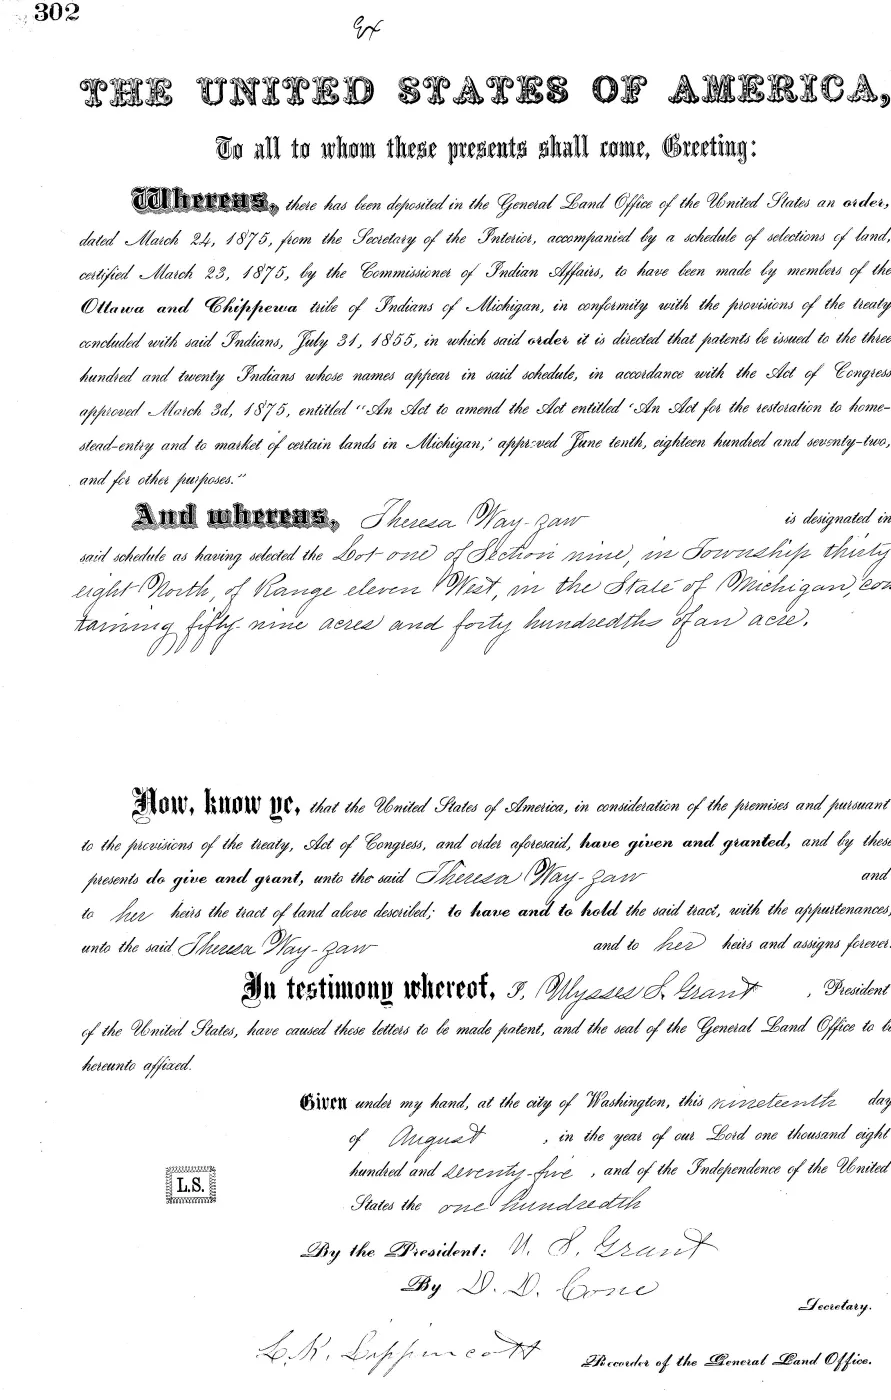 302
Ex
THE UNITED STATES OF AMERICA,
To all to whom these presents shall come, Greeting:
Whereas, there has been deposited in the General Land Office of the United States an order,
dated March 24, 1875, from the Secretary of the Interior, accompanied by a schedule of selections of land,
certified March 23, 1875, by the Commissioner of Indian Affairs, to have been made by members of the
Ottawa and Chippewa tribe of Indians of Michigan, in conformity with the provisions of the treaty
concluded with said Indians, July 31, 1855, in which said order it is directed that patents be issued to the three
hundred and twenty Indians whose names appear in said schedule, in accordance with the Act of Congress
approved March 3d, 1875, entitled "An Act to amend the Act entitled 'An Act for the restoration to home-
stead-entry and to market of certain lands in Michigan,' approved June tenth, eighteen hundred and seventy-two,
and for other purposes."
And whereas, Theresa Way-zaw is designated in
said schedule as having selected the Lot one of Section nine, in Township thirty
eight North, of Range eleven West, in the State of Michigan, con
taining fifty-nine acres and forty hundredths of an acre.
Now, know ye, that the United States of America, in consideration of the premises and pursuant
to the provisions of the treaty, Act of Congress, and order aforesaid, have given and granted, and by these
presents do give and grant, unto the said Theresa Way-zaw and
to her heirs the tract of land above described; to have and to hold the said tract, with the appurtenances,
unto the said Theresa Way-zaw and to her heirs and assigns forever.
In testimony whereof, I, Ulysses S. Grant, President
of the United States, have caused these letters to be made patent, and the seal of the General Land Office to b
hereunto affixed.
Given under my hand, at the city of Washington, this nineteenth day
of August, in the year of our Lord one thousand eight
hundred and seventy-five, and of the Independence of the United
States the one hundredth
L.S.
By the President: U. S. Grant
By D. D. Cone
Secretary.
L. K. Lippincott
Recorder of the General Land Office.